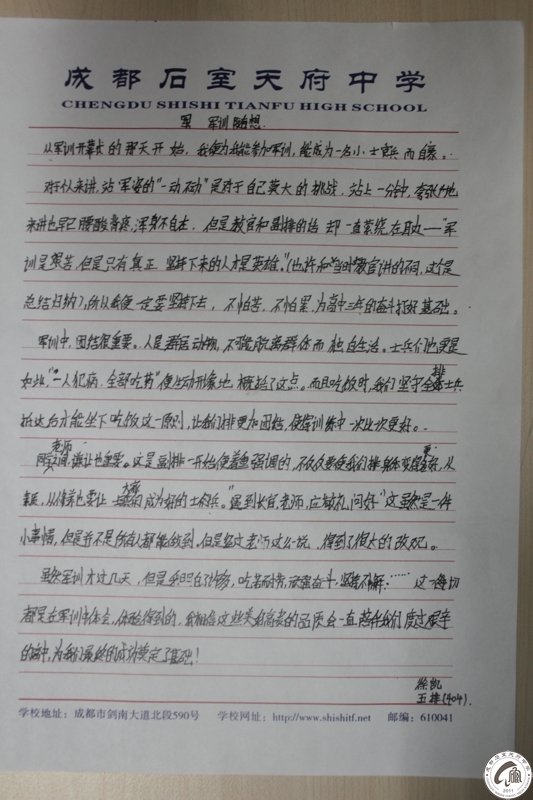 成都石室天府中学
CHENGDU SHISHI TIANFU HIGH SCHOOL
军训随想
从军训开幕式的那天开始，我便为我能参加军训，能成为一名小士官兵而自豪。
对于从来讲，站军姿的“一动不动”是对于自己莫大的挑战，站上一分钟，夸张地
来讲也早已腰酸背疼，浑身不自在，但是教官和副排的话却一直萦绕在耳边——“军
训是艰苦，但是只有真正坚持下来的人才是英雄。”（也许和当时教官讲的不同，这个是
总结归纳），所以我便一定要坚持下去，不怕苦，不怕累，为高中三年的奋斗打好基础。
军训中，团结很重要。人是群居动物，不可能脱离群体而独自生活。士兵们也更是
如此，“一人犯病，全部吃药”便生动形象地概括了这点。而且吃饭时，我们坚守全排士兵
抵达后才能坐下吃饭这一原则，让我们排更加团结，使得训练中一次比一次更好。
老师
同学之间，谦让也重要。这是副排一开始便着重强调的，不仅仅要使我们排身体变得更好，从
素质，从修养也要让大家成为好的士官兵。“遇到长官，老师，应敬礼问好”这虽然是一件
小事情，但是并不是所有人都能做到，但是经过老师这么一说，得到了很大的改观。
虽然军训才过几天，但是我明白了许多，吃苦耐劳，顽强奋斗，坚持不懈……这一切
都是在军训中体会，体验得到的，我相信这些美好高尚的品质会一直陪伴我们度过艰辛
的高中，为我们最终的成功奠定了基础！
徐凯
五排(404)
学校地址：成都市剑南大道北段590号 学校网址：http://www.shishitf.net 邮编：610041
2011